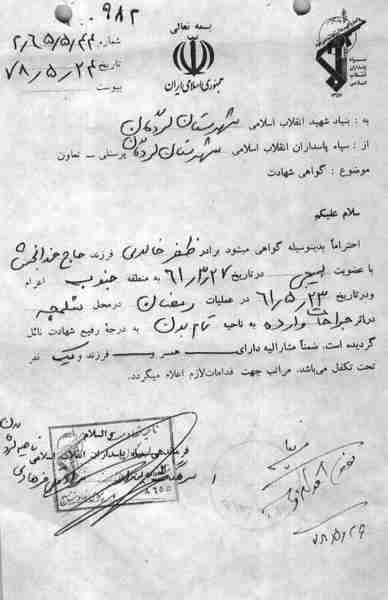 ۹۸۲
بسمه تعالی
شماره ۲,۶۵,۵,۴۴
تاریخ ۷۸,۵,۲۴
پیوست
جمهوری اسلامی ایران
سپاه پاسداران انقلاب اسلامی
به : بنیاد شهید انقلاب اسلامی شهرستان لردگان
از : سپاه پاسداران انقلاب اسلامی شهرستان لردگان پرسنلی ـ تعاون
موضوع : گواهی شهادت
سلام علیکم
احتراما بدینوسیله گواهی میشود برادر ظفر خالدی فرزند حاج خدابخش
با عضویت بسیجی در تاریخ ۶۱,۳,۲۷ به منطقه جنوب اعزام
و در تاریخ ۶۱,۵,۲۳ در عملیات رمضان در محل شلمچه
در اثر جراحات وارده به ناحیه تمام بدن به درجه رفیع شهادت نائل
گردیده است. ضمنا مشارالیه دارای ـ همسر و ـ فرزند و یک نفر
تحت تکفل می‌باشد. مراتب جهت اقدامات لازم اعلام میگردد.
فرماندهی سپاه پاسداران انقلاب اسلامی
۷۸,۵,۲۶